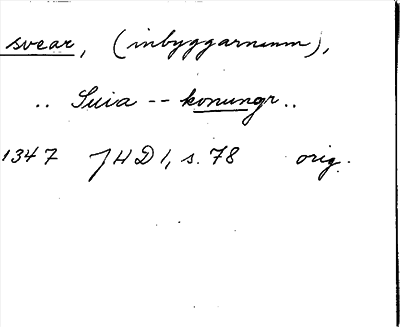 svear, (inbyggarnamn),
.. Suia -- konungr..
1347 JHD 1, s. 78 orig.